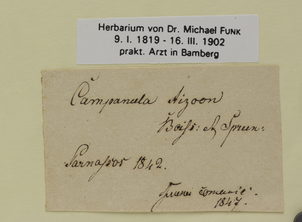 Herbarium von Dr. Michael FUNK
9. I. 1819 - 16. III. 1902
prakt. Arzt in Bamberg
Campanula Aizoon
Boiss: & Sprun:
Parnassos 1842.
1847.